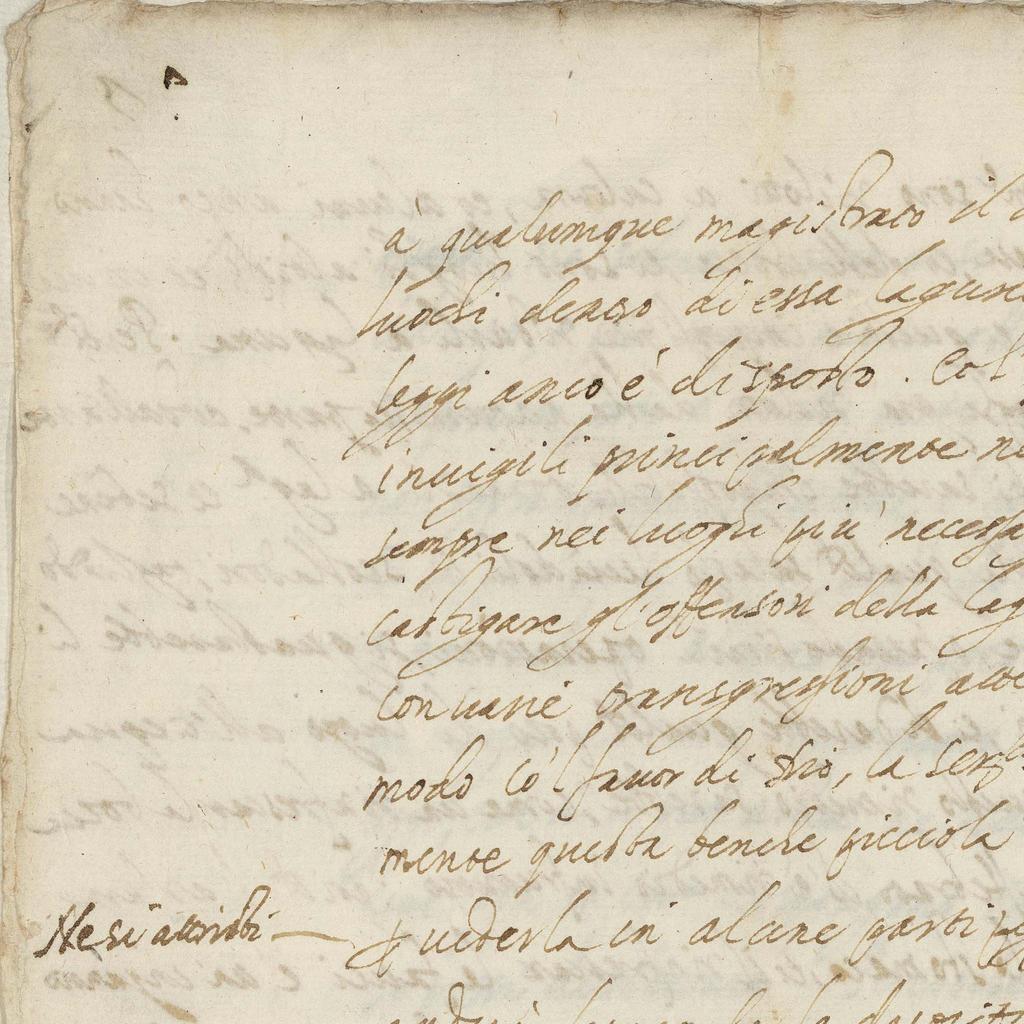 à qualumque magistrato il
luochi dentro di essa lagune
leggi anco è disposto. Col
inuigili principalmente ne
sempre nei luoghi più necessa
castigare gl'offensori della lag
con uarie transgressioni
modo co'l fauor di Dio, la ser.
mente questa benche picciola
Ne si attribi
uederla in alcune parti